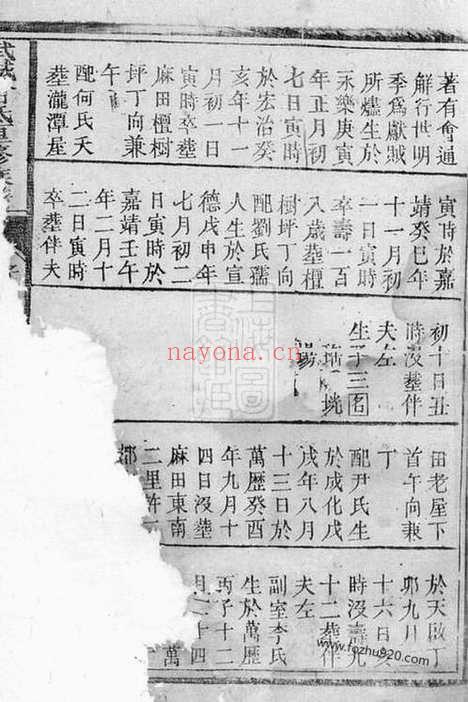 著有會通
解行世明
季爲獻賊
所燼生於
永樂庚寅
年正月初
七日寅時
於宏治癸
亥年十一
月初一日
寅時卒葬
麻田檀樹
坪丁向兼
午
配何氏天
葬瀧潭屋
寅時於嘉
靖癸巳年
十一月初
一日寅時
卒壽一百
八歲葬檀
樹坪丁向
配劉氏孺
人生於宣
德戊申年
七月初二
日寅時於
嘉靖壬午
年二月十
二日寅時
卒葬伴夫
初十日丑
時沒葬伴
夫左
生子三名
珖
田老屋下
首午向兼
丁
配尹氏生
於成化戊
戌年八月
十三日於
萬歷癸酉
年九月十
四日沒葬
麻田東南
二里許
於天啟丁
卯九月
十六日亥
時沒壽九
十二葬伴
夫左
副室李氏
生於萬歷
丙子十二
月二十四
萬
nayona.cn
www.fozhu920.com